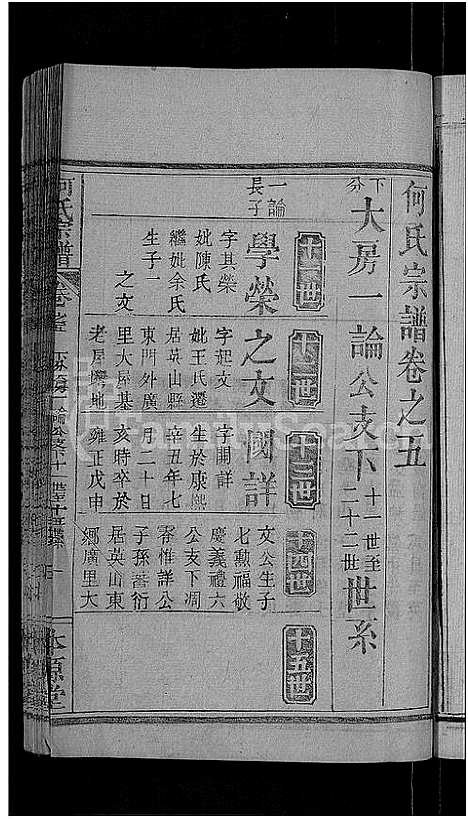 何氏宗譜卷之五
下分
大房一論公支下十一世至二十二世世系
十一世
十二世
十三世
十四世
十五世
一論長子
學榮
字其榮
妣陳氏
繼妣余氏
生子一
之文
之文
字起文
妣王氏遷
居英山縣
東門外廣
里大屋基
老屋塆地
國詳
字開詳
生於康熙
辛丑年七
月二十日
亥時卒於
雍正戊申
文公生子
七勲福敬
慶義禮六
公支下凋
零惟詳公
子孫蕃衍
居英山東
鄉廣里大
何氏宗譜
卷之五
本源堂